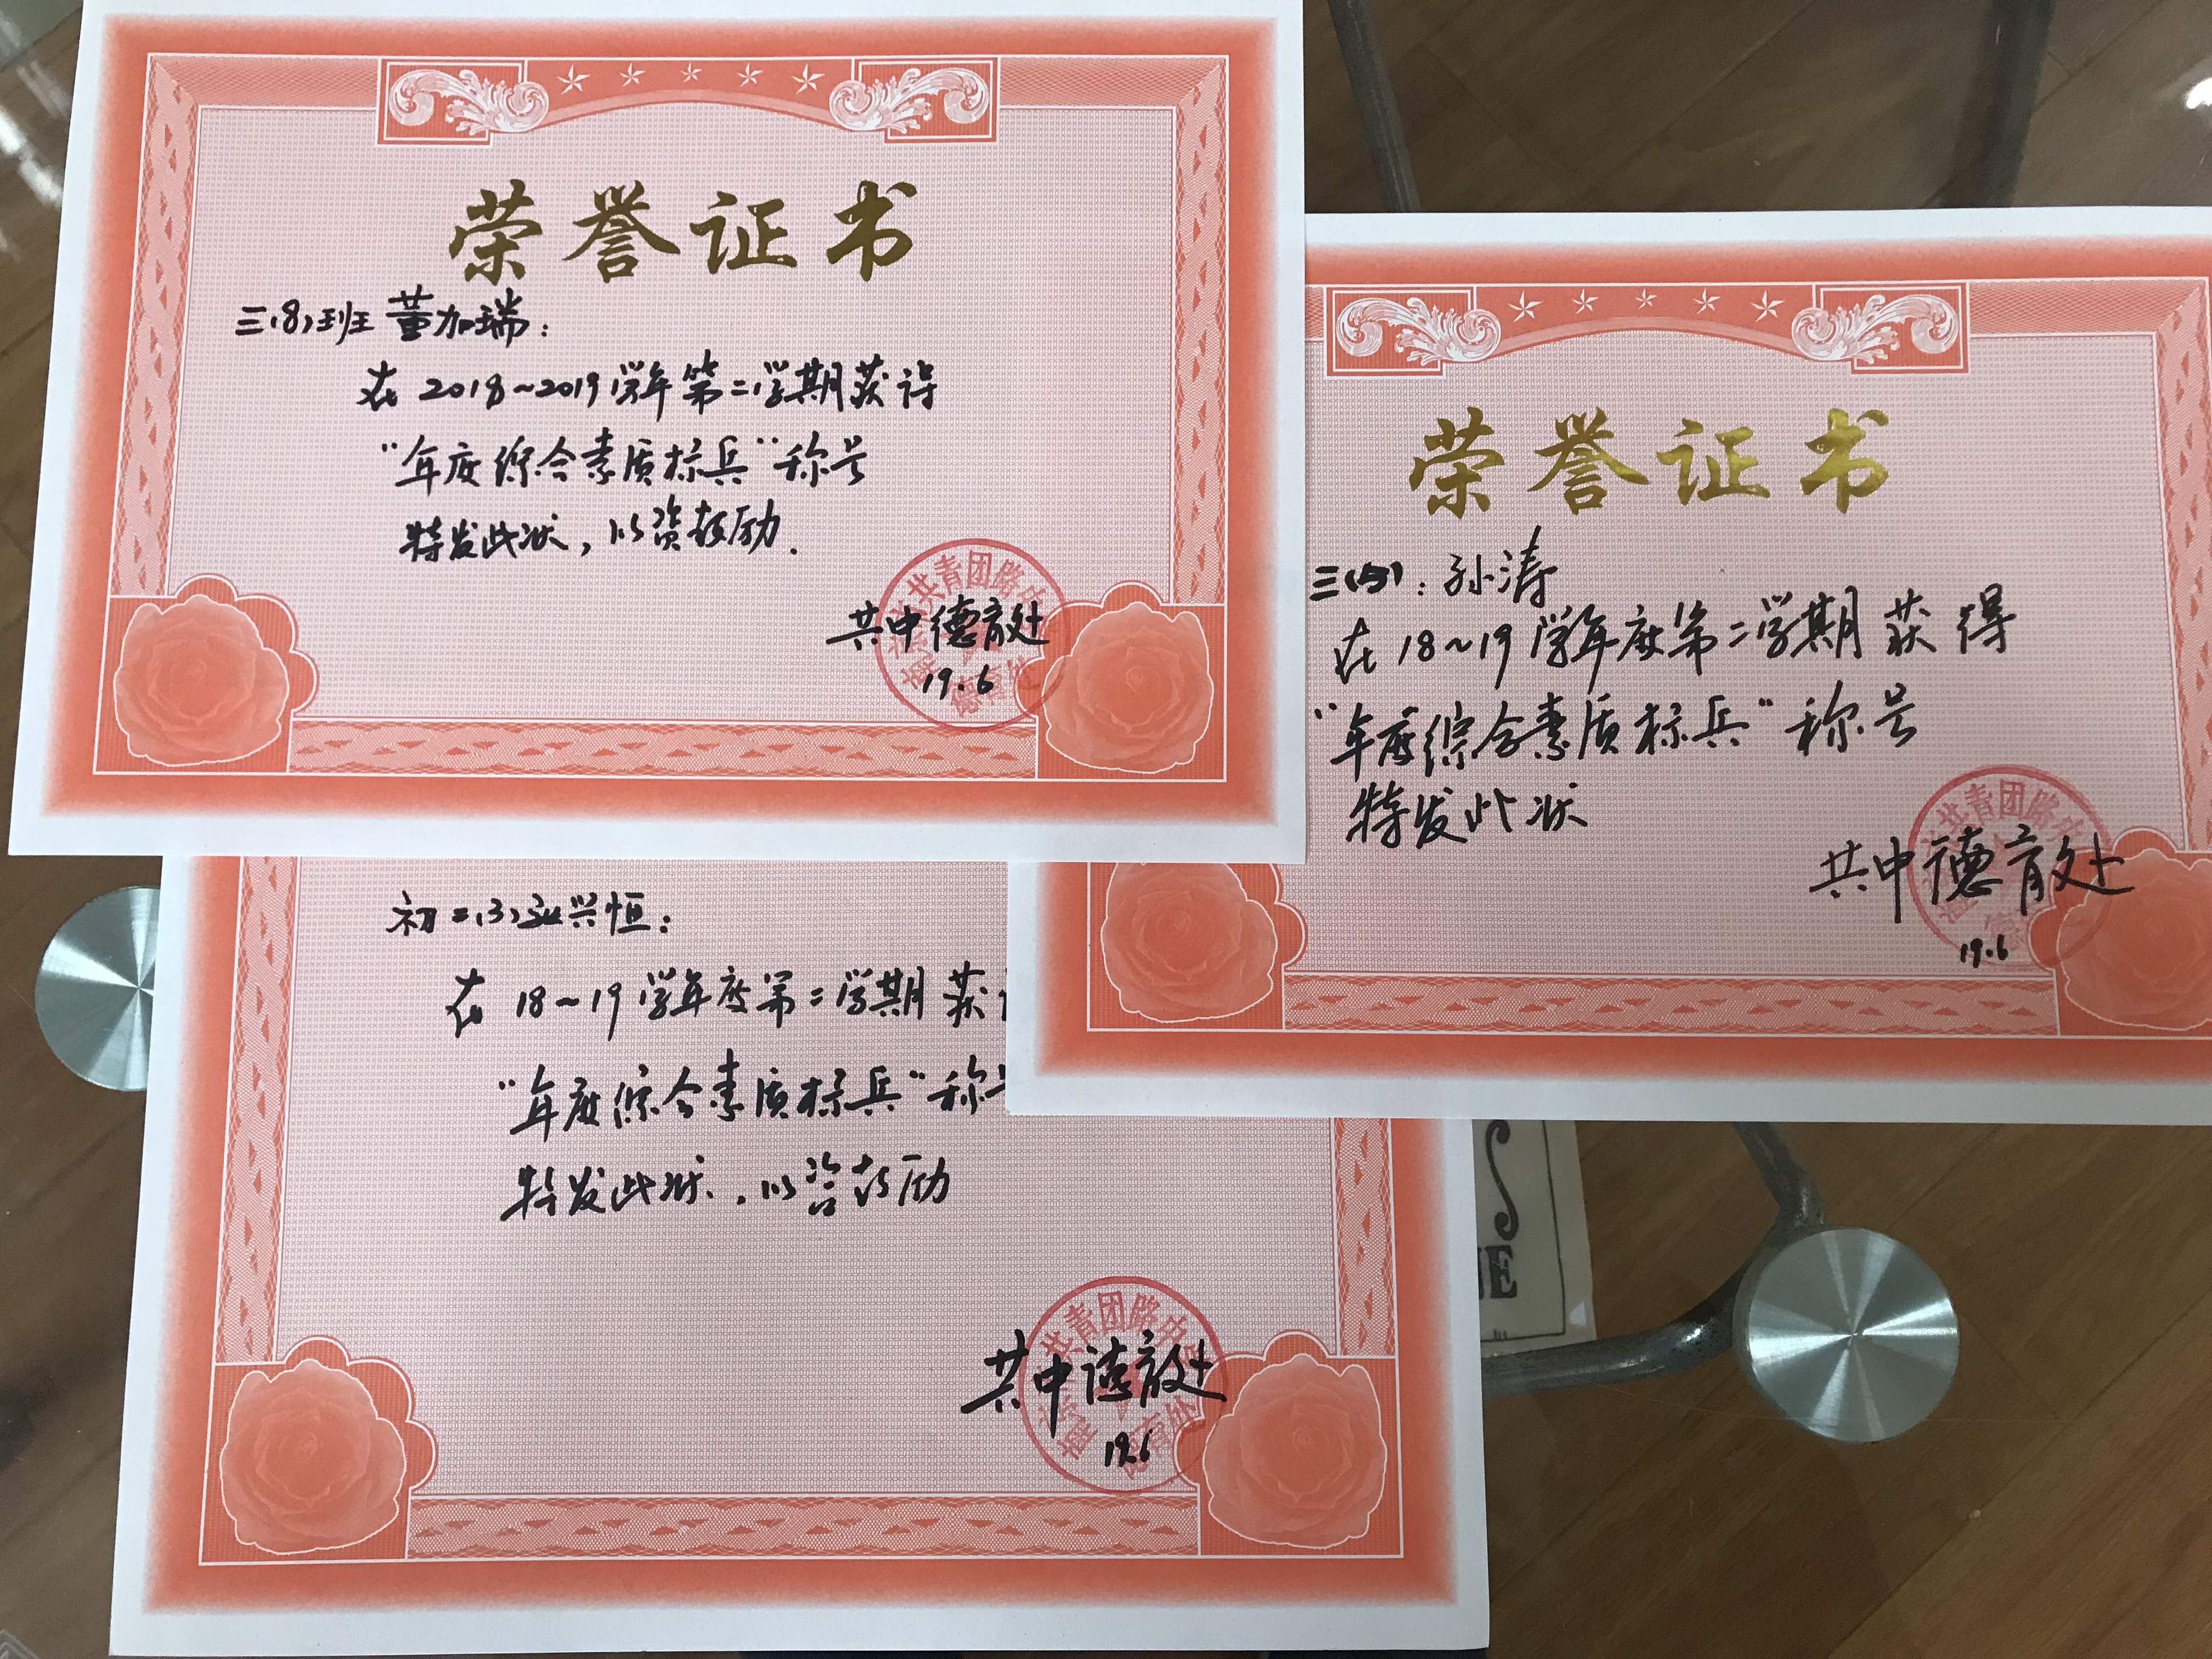 荣誉证书
三(8)班 董加瑞:
在 2018~2019学年第二学期获得
“年度综合素质标兵”称号
特发此状,以资鼓励.
共中德育处
19.6
荣誉证书
孙涛
在 18~19 学年度第二学期 获得
“年度综合素质标兵”称号
特发此状
共中德育处
19.6
初二(3) 兴恒:
在 18~19 学年度第二学期 获
“年度综合素质标兵”称
特发此状.,以资鼓励
共中德育处
19.6
共青团路
共青团路
共青团路